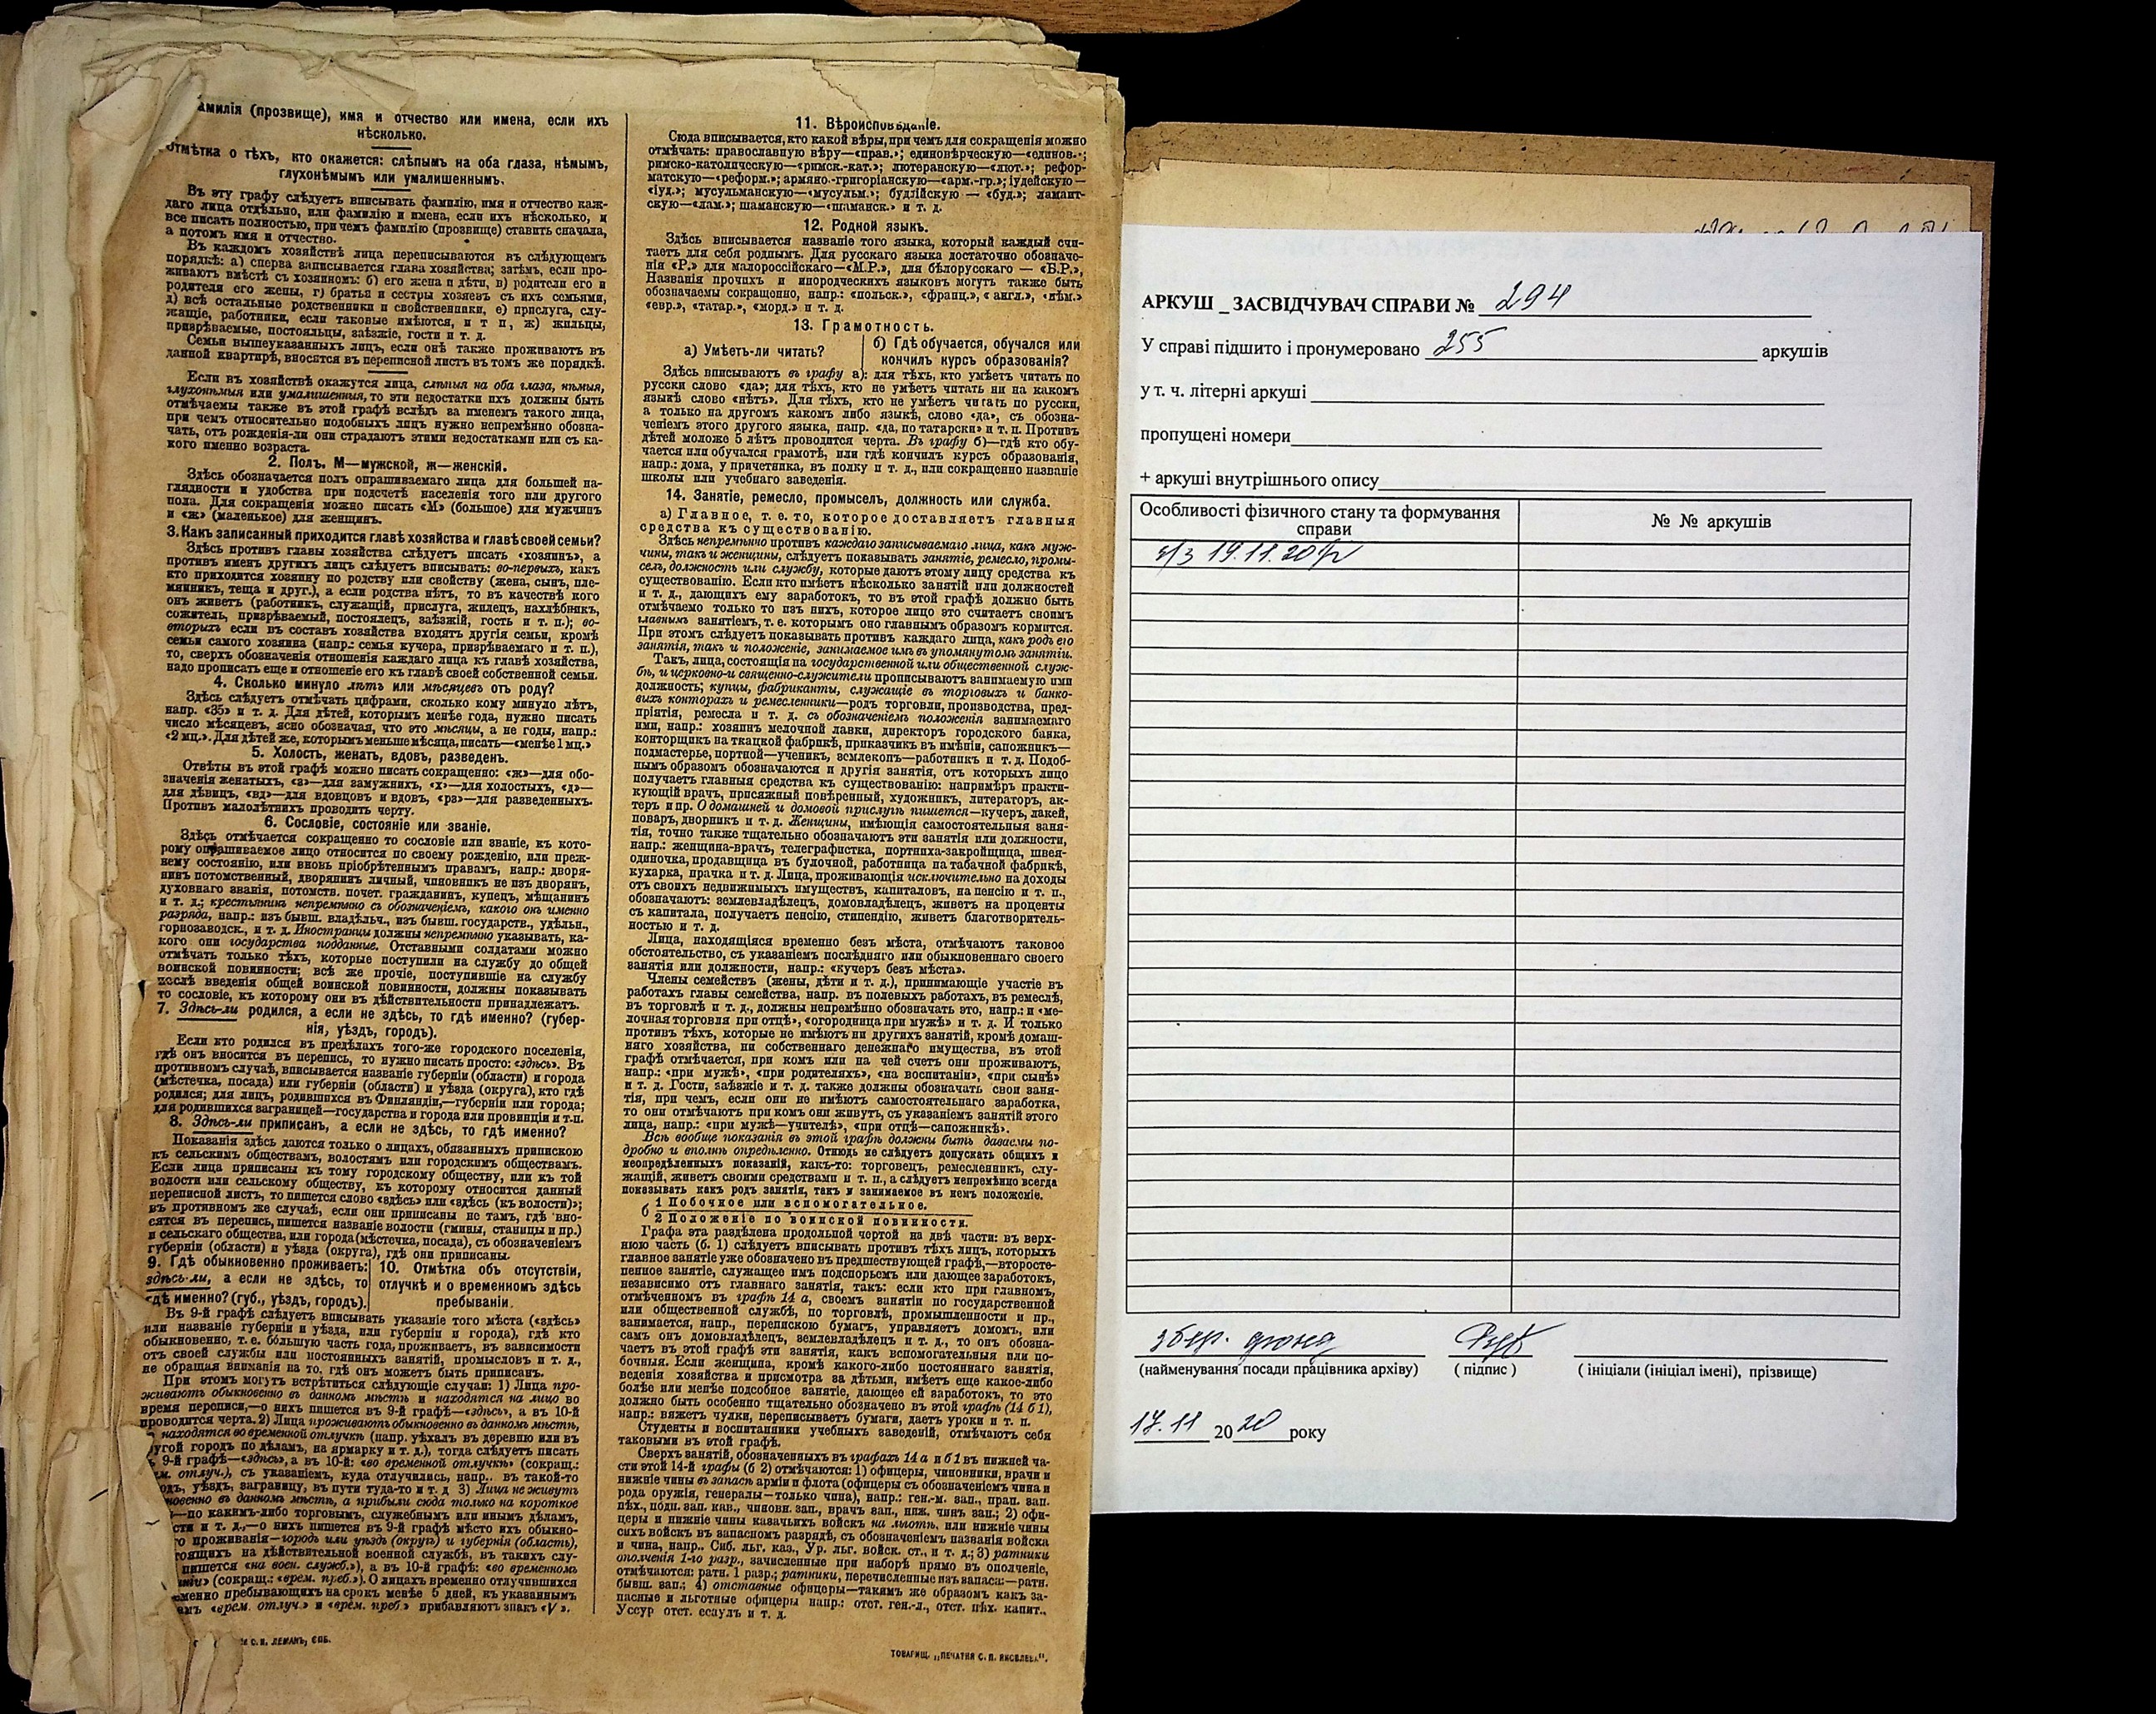 амилія (прозвище), имя и отчество или имена, если ихъ
нѣсколько.
отмѣтка о тѣхъ, кто окажется: слѣпымъ на оба глаза, нѣмымъ,
глухонѣмымъ или умалишеннымъ.
Въ эту графу слѣдуетъ вписывать фамилію, имя и отчество каж-
даго лица отдѣльно, или фамилію и имена, если ихъ нѣсколько, и
все писать полностью, при чемъ фамилію (прозвище) ставить сначала,
а потомъ имя и отчество.
Въ каждомъ хозяйствѣ лица переписываются въ слѣдующемъ
порядкѣ: а) сперва записывается глава хозяйства; затѣмъ, если про-
живаютъ вмѣстѣ съ хозяиномъ: б) его жена и дѣти, в) родители его и
родители его жены, г) братья и сестры хозяевъ съ ихъ семьями,
д) всѣ остальные родственники и свойственники, е) прислуга, слу-
жащіе, работники, если таковые имѣются, и т п, ж) жильцы,
призрѣваемые, постояльцы, заѣзжіе, гости и т. д.
Семьи вышеуказанныхъ лицъ, если онѣ также проживаютъ въ
данной квартирѣ, вносятся въ переписной листъ въ томъ же порядкѣ.
Если въ хозяйствѣ окажутся лица, слѣпыя на оба глаза, нѣмыя,
глухонѣмыя или умалишенныя, то эти недостатки ихъ должны быть
отмѣчаемы также въ этой графѣ вслѣдъ за именемъ такого лица,
при чемъ относительно подобныхъ лицъ нужно непремѣнно обозна-
чать, отъ рожденія-ли они страдаютъ этими недостатками или съ ка-
кого именно возраста.
2. Полъ. М—мужской, ж—женскій.
Здѣсь обозначается полъ опрашиваемаго лица для большей на-
глядности и удобства при подсчетѣ населенія того или другого
пола. Для сокращенія можно писать «М» (большое) для мужчинъ
и «ж» (маленькое) для женщинъ.
3. Какъ записанный приходится главѣ хозяйства и главѣ своей семьи?
Здѣсь противъ главы хозяйства слѣдуетъ писать «хозяинъ», а
противъ именъ другихъ лицъ слѣдуетъ вписывать: во-первыхъ, какъ
кто приходится хозяину по родству или свойству (жена, сынъ, пле-
мянникъ, теща и друг.), а если родства нѣтъ, то въ качествѣ кого
онъ живетъ (работникъ, служащій, прислуга, жилецъ, нахлѣбникъ,
сожитель, призрѣваемый, постоялецъ, заѣзжій, гость и т. п.); во-
вторыхъ если въ составъ хозяйства входятъ другія семьи, кромѣ
семьи самого хозяина (напр.: семья кучера, призрѣваемаго и т. п.),
то, сверхъ обозначенія отношенія каждаго лица къ главѣ хозяйства,
надо прописать еще и отношеніе его къ главѣ своей собственной семьи.
4. Сколько минуло лѣтъ или мѣсяцевъ отъ роду?
Здѣсь слѣдуетъ отмѣчать цифрами, сколько кому минуло лѣтъ,
напр. «35» и т. д. Для дѣтей, которымъ менѣе года, нужно писать
число мѣсяцевъ, ясно обозначая, что это мѣсяцы, а не годы, напр.:
«2 мц.». Для дѣтей же, которымъ меньше мѣсяца, писать—«менѣе 1 мц.»
5. Холостъ, женатъ, вдовъ, разведенъ.
Отвѣты въ этой графѣ можно писать сокращенно: «ж»—для обо-
значенія женатыхъ, «з»—для замужнихъ, «х»—для холостыхъ, «д»—
для дѣвицъ, «вд»—для вдовцовъ и вдовъ, «рз»—для разведенныхъ.
Противъ малолѣтнихъ проводить черту.
6. Сословіе, состояніе или званіе.
Здѣсь отмѣчается сокращенно то сословіе или званіе, къ кото-
рому опрашиваемое лицо относится по своему рожденію, или преж-
нему состоянію, или вновь пріобрѣтеннымъ правамъ, напр.: дворя-
нинъ потомственный, дворянинъ личный, чиновникъ не изъ дворянъ,
духовнаго званія, потомств. почет. гражданинъ, купецъ, мѣщанинъ
и т. д.; крестьянинъ непремѣнно съ обозначеніемъ, какого онъ именно
разряда, напр.: изъ бывш. владѣльч., изъ бывш. государств., удѣльн.,
горнозаводск., и т. д. Иностранцы должны непремѣнно указывать, ка-
кого они государства подданные. Отставными солдатами можно
отмѣчать только тѣхъ, которые поступили на службу до общей
воинской повинности; всѣ же прочіе, поступившіе на службу
послѣ введенія общей воинской повинности, должны показывать
то сословіе, къ которому они въ дѣйствительности принадлежатъ.
7. Здѣсь-ли родился, а если не здѣсь, то гдѣ именно? (губер-
нія, уѣздъ, городъ).
Если кто родился въ предѣлахъ того-же городского поселенія,
гдѣ онъ вносится въ перепись, то нужно писать просто: «здѣсь». Въ
противномъ случаѣ, вписывается названіе губерніи (области) и города
(мѣстечка, посада) или губерніи (области) и уѣзда (округа), кто гдѣ
родился; для лицъ, родившихся въ Финляндіи,—губерніи или города;
для родившихся заграницей—государства и города или провинціи и т.п.
8. Здѣсь-ли приписанъ, а если не здѣсь, то гдѣ именно?
Показанія здѣсь даются только о лицахъ, обязанныхъ припискою
къ сельскимъ обществамъ, волостямъ или городскимъ обществамъ.
Если лица приписаны къ тому городскому обществу, или къ той
волости или сельскому обществу, къ которому относится данный
переписной листъ, то пишется слово «здѣсь» или «здѣсь (къ волости)»;
въ противномъ же случаѣ, если они приписаны не тамъ, гдѣ вно-
сятся въ перепись, пишется названіе волости (гмины, станицы и пр.)
и сельскаго общества, или города (мѣстечка, посада), съ обозначеніемъ
губерніи (области) и уѣзда (округа), гдѣ они приписаны.
9. Гдѣ обыкновенно проживаетъ:
здѣсь-ли, а если не здѣсь, то
гдѣ именно? (губ., уѣздъ, городъ).
10. Отмѣтка объ отсутствіи,
отлучкѣ и о временномъ здѣсь
пребываніи.
Въ 9-й графѣ слѣдуетъ вписывать указаніе того мѣста («здѣсь»
или названіе губерніи и уѣзда, или губерніи и города), гдѣ кто
обыкновенно, т. е. бо́льшую часть года, проживаетъ, въ зависимости
отъ своей службы или постоянныхъ занятій, промысловъ и т. д.,
не обращая вниманія на то, гдѣ онъ можетъ быть приписанъ.
При этомъ могутъ встрѣтиться слѣдующіе случаи: 1) Лица про-
живаютъ обыкновенно въ данномъ мѣстѣ и находятся на лицо во
время переписи,—о нихъ пишется въ 9-й графѣ—«здѣсь», а въ 10-й
проводится черта. 2) Лица проживаютъ обыкновенно въ данномъ мѣстѣ,
находятся во временной отлучкѣ (напр. уѣхалъ въ деревню или въ
угой городъ по дѣламъ, на ярмарку и т. д.), тогда слѣдуетъ писать
9-й графѣ—«здѣсь», а въ 10-й: «во временной отлучкѣ» (сокращ.:
м. отлуч.), съ указаніемъ, куда отлучились, напр.. въ такой-то
одъ, уѣздъ, заграницу, въ пути туда-то и т. д 3) Лица не живутъ
новенно въ данномъ мѣстѣ, а прибыли сюда только на короткое
—по какимъ-либо торговымъ, служебнымъ или инымъ дѣламъ,
сти и т. д.,—о нихъ пишется въ 9-й графѣ мѣсто ихъ обыкно-
го проживанія—городъ или уѣздъ (округъ) и губернія (область),
тоящихъ на дѣйствительной военной службѣ, въ такихъ слу-
пишется «на воен. служб.»), а въ 10-й графѣ: «во временномъ
ніи» (сокращ.: «врем. преб.»). О лицахъ временно отлучившихся
менно пребывающихъ на срокъ менѣе 5 дней, къ указаннымъ
амъ «врем. отлуч.» и «врем. преб.» прибавляютъ знакъ «V».
С. И. ЛЕМАНЪ, СПБ.
11. Вѣроисповѣданіе.
Сюда вписывается, кто какой вѣры, при чемъ для сокращенія можно
отмѣчать: православную вѣру—«прав.»; единовѣрческую—«единов.»;
римско-католическую—«римск.-кат.»; лютеранскую—«лют.»; рефор-
матскую—«реформ.»; армяно.-григоріанскую—«арм.-гр.»; іудейскую—
«іуд.»; мусульманскую—«мусульм.»; буддійскую — «буд.»; ламаит-
скую—«лам.»; шаманскую—«шаманск.» и т. д.
12. Родной языкъ.
Здѣсь вписывается названіе того языка, который каждый счи-
таетъ для себя роднымъ. Для русскаго языка достаточно обозначе-
нія «Р.» для малороссійскаго—«М.Р.», для бѣлорусскаго — «Б.Р.»,
Названія прочихъ и инородческихъ языковъ могутъ также быть
обозначаемы сокращонно, напр.: «польск.», «франц.», « англ.», «нѣм.»
«евр.», «татар.», «морд.» и т. д.
13. Грамотность.
а) Умѣетъ-ли читать?
б) Гдѣ обучается, обучался или
кончилъ курсъ образованія?
Здѣсь вписываютъ въ графу а): для тѣхъ, кто умѣетъ читать по
русски слово «да»; для тѣхъ, кто не умѣетъ читать ни на какомъ
языкѣ слово «нѣтъ». Для тѣхъ, кто не умѣетъ читать по русски,
а только на другомъ какомъ либо языкѣ, слово «да», съ обозна-
ченіемъ этого другого языка, напр. «да, по татарски» и т. п. Противъ
дѣтей моложе 5 лѣтъ проводится черта. Въ графу б)—гдѣ кто обу-
чается или обучался грамотѣ, или гдѣ кончилъ курсъ образованія,
напр.: дома, у причетника, въ полку и т. д., или сокращенно названіе
школы или учебнаго заведенія.
14. Занятіе, ремесло, промыселъ, должность или служба.
а) Главное, т. е. то, которое доставляетъ главныя
средства къ существованію.
Здѣсь непремѣнно противъ каждаго записываемаго лица, какъ муж-
чины, такъ и женщины, слѣдуетъ показывать занятіе, ремесло, промы-
селъ, должность или службу, которые даютъ этому лицу средства къ
существованію. Если кто имѣетъ нѣсколько занятій или должностей
и т. д., дающихъ ему заработокъ, то въ этой графѣ должно быть
отмѣчаемо только то изъ нихъ, которое лицо это считаетъ своимъ
главнымъ занятіемъ, т. е. которымъ оно главнымъ образомъ кормится.
При этомъ слѣдуетъ показывать противъ каждаго лица, какъ родъ его
занятія, такъ и положеніе, занимаемое имъ въ упомянутомъ занятіи.
Такъ, лица, состоящія на государственной или общественной служ-
бѣ, и церковно-и священно-служители прописываютъ занимаемую ими
должность; купцы, фабриканты, служащіе въ торговыхъ и банко-
выхъ конторахъ и ремесленники—родъ торговли, производства, пред-
пріятія, ремесла и т. д. съ обозначеніемъ положенія занимаемаго
ими, напр.: хозяинъ мелочной лавки, директоръ городского банка,
конторщикъ на ткацкой фабрикѣ, приказчикъ въ имѣніи, сапожникъ—
подмастерье, портной—ученикъ, землекопъ—работникъ и т. д. Подоб-
нымъ образомъ обозначаются и другія занятія, отъ которыхъ лицо
получаетъ главныя средства къ существованію: напримѣръ практи-
кующій врачъ, присяжный повѣренный, художникъ, литераторъ, ак-
теръ и пр. О домашней и домовой прислугѣ пишется—кучеръ, лакей,
поваръ, дворникъ и т. д. Женщины, имѣющія самостоятельныя заня-
тія, точно также тщательно обозначаютъ эти занятія или должности,
напр.: женщина-врачъ, телеграфистка, портниха-закройщица, швея-
одиночка, продавщица въ булочной, работница на табачной фабрикѣ,
кухарка, прачка и т. д. Лица, проживающія исключительно на доходы
отъ своихъ недвижимыхъ имуществъ, капиталовъ, на пенсію и т. п.,
обозначаютъ: землевладѣлецъ, домовладѣлецъ, живетъ на проценты
съ капитала, получаетъ пенсію, стипендію, живетъ благотворитель-
ностью и т. д.
Лица, находящіяся временно безъ мѣста, отмѣчаютъ таковое
обстоятельство, съ указаніемъ послѣдняго или обыкновеннаго своего
занятія или должности, напр.: «кучеръ безъ мѣста».
Члены семействъ (жены, дѣти и т. д.), принимающіе участіе въ
работахъ главы семейства, напр. въ полевыхъ работахъ, въ ремеслѣ,
въ торговлѣ и т. д., должны непремѣнно обозначать это, напр.: и «ме-
лочная торговля при отцѣ», «огородница при мужѣ» и т. д. И только
противъ тѣхъ, которые не имѣютъ ни другихъ занятій, кромѣ домаш-
няго хозяйства, ни собственнаго денежнаго имущества, въ этой
графѣ отмѣчается, при комъ или на чей счетъ они проживаютъ,
напр.: «при мужѣ», «при родителяхъ», «на воспитаніи», «при сынѣ»
и т. д. Гости, заѣзжіе и т. д. также должны обозначать свои заня-
тія, при чемъ, если они не имѣютъ самостоятельнаго заработка,
то они отмѣчаютъ при комъ они живутъ, съ указаніемъ занятій этого
лица, напр.: «при мужѣ—учителѣ», «при отцѣ—сапожникѣ».
Всѣ вообще показанія въ этой графѣ должны быть даваемы по-
дробно и вполнѣ опредѣленно. Отнюдь не слѣдуетъ допускать общихъ и
неопредѣленныхъ показаній, какъ-то: торговецъ, ремесленникъ, слу-
жащій, живетъ своими средствами и т. п., а слѣдуетъ непремѣнно всегда
показывать какъ родъ занятія, такъ и занимаемое въ немъ положеніе.
б 1 Побочное или вспомогательное.
2 Положеніе по воинской повинности.
Графа эта раздѣлена продольной чертой на двѣ части: въ верх-
нюю часть (б. 1) слѣдуетъ вписывать противъ тѣхъ лицъ, которыхъ
главное занятіе уже обозначено въ предшествующей графѣ,—второсте-
пенное занятіе, служащее имъ подспорьемъ или дающее заработокъ,
независимо отъ главнаго занятія, такъ: если кто при главномъ,
отмѣченномъ въ графѣ 14 а, своемъ занятіи по государственной
или общественной службѣ, по торговлѣ, промышленности и пр.,
занимается, напр., перепискою бумагъ, управляетъ домомъ, или
самъ онъ домовладѣлецъ, землевладѣлецъ и т. д., то онъ обозна-
чаетъ въ этой графѣ эти занятія, какъ вспомогательныя или по-
бочныя. Если женщина, кромѣ какого-либо постояннаго занятія,
веденія хозяйства и присмотра за дѣтьми, имѣетъ еще какое-либо
болѣе или менѣе подсобное занятіе, дающее ей заработокъ, то это
должно быть особенно тщательно обозначено въ этой графѣ (14 б 1),
напр.: вяжетъ чулки, переписываетъ бумаги, даетъ уроки и т. п.
Студенты и воспитанники учебныхъ заведеній, отмѣчаютъ себя
таковыми въ этой графѣ.
Сверхъ занятій, обозначенныхъ въ графахъ 14 а и б 1 въ нижней ча-
сти этой 14-й графы (б 2) отмѣчаются: 1) офицеры, чиновники, врачи и
нижніе чины въ запасѣ арміи и флота (офицеры съ обозначеніемъ чина и
рода оружія, генералы—только чина), напр.: ген.-м. зап., прап. зап.
пѣх., подп. зап. кав., чиновн. зап., врачъ зап., ниж. чинъ зап.; 2) офи-
церы и нижніе чины казачьихъ войскъ на льготѣ, или нижніе чины
сихъ войскъ въ запасномъ разрядѣ, съ обозначеніемъ названія войска
и чина, напр.. Сиб. льг. каз., Ур. льг. войск. ст., и т. д.; 3) ратники
ополченія 1-го разр., зачисленные при наборѣ прямо въ ополченіе,
отмѣчаются: ратн. 1 разр.; ратники, перечисленные изъ запаса:—ратн.
бывш. зап.; 4) отставные офицеры—такимъ же образомъ какъ за-
пасные и льготные офицеры напр.: отст. ген.-л., отст. пѣх. капит.,
Уссур отст. есаулъ и т. д.
ТОВАРИЩ. „ПЕЧАТНЯ С. П. ЯКОВЛЕВА".
АРКУШ _ ЗАСВІДЧУВАЧ СПРАВИ № 294
У справі підшито і пронумеровано 255 аркушів
у т. ч. літерні аркуші
пропущені номери
+ аркуші внутрішнього опису
Особливості фізичного стану та формування
справи
№ № аркушів
19.11.20
(найменування посади працівника архіву) ( підпис ) ( ініціали (ініціал імені), прізвище)
17.11 2020 року